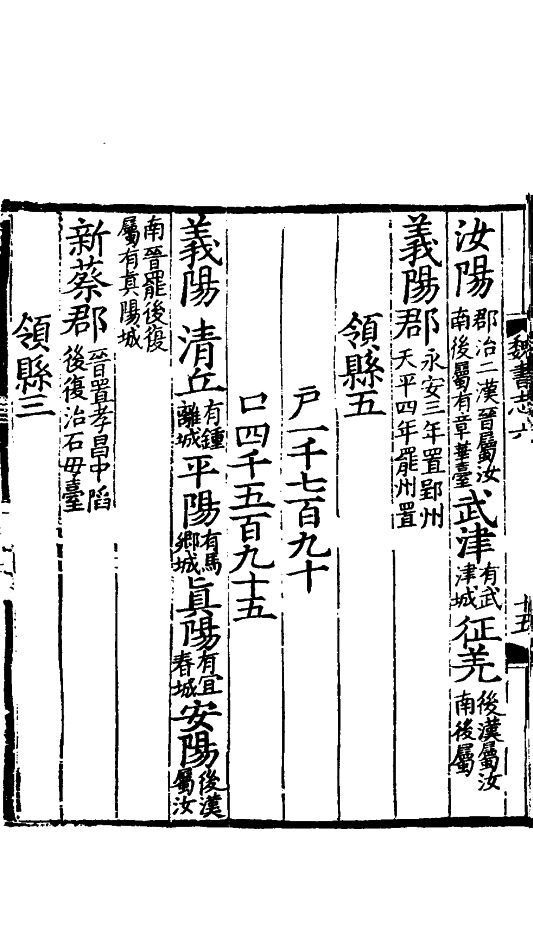 魏書志六
十五
汝陽郡治二漢晉屬汝南後屬有章華臺武津有武津城征羌後漢屬汝南後屬
義陽郡永安三年置郢州天平四年罷州置
領縣五
戶一千七百九十
口四千五百九十五
義陽清丘有鍾離城平陽有馬鄉城眞陽有宜春城安陽後漢屬汝
南晉罷後復屬有眞陽城
新蔡郡晉置孝昌中䧟後復治石母臺
領縣三